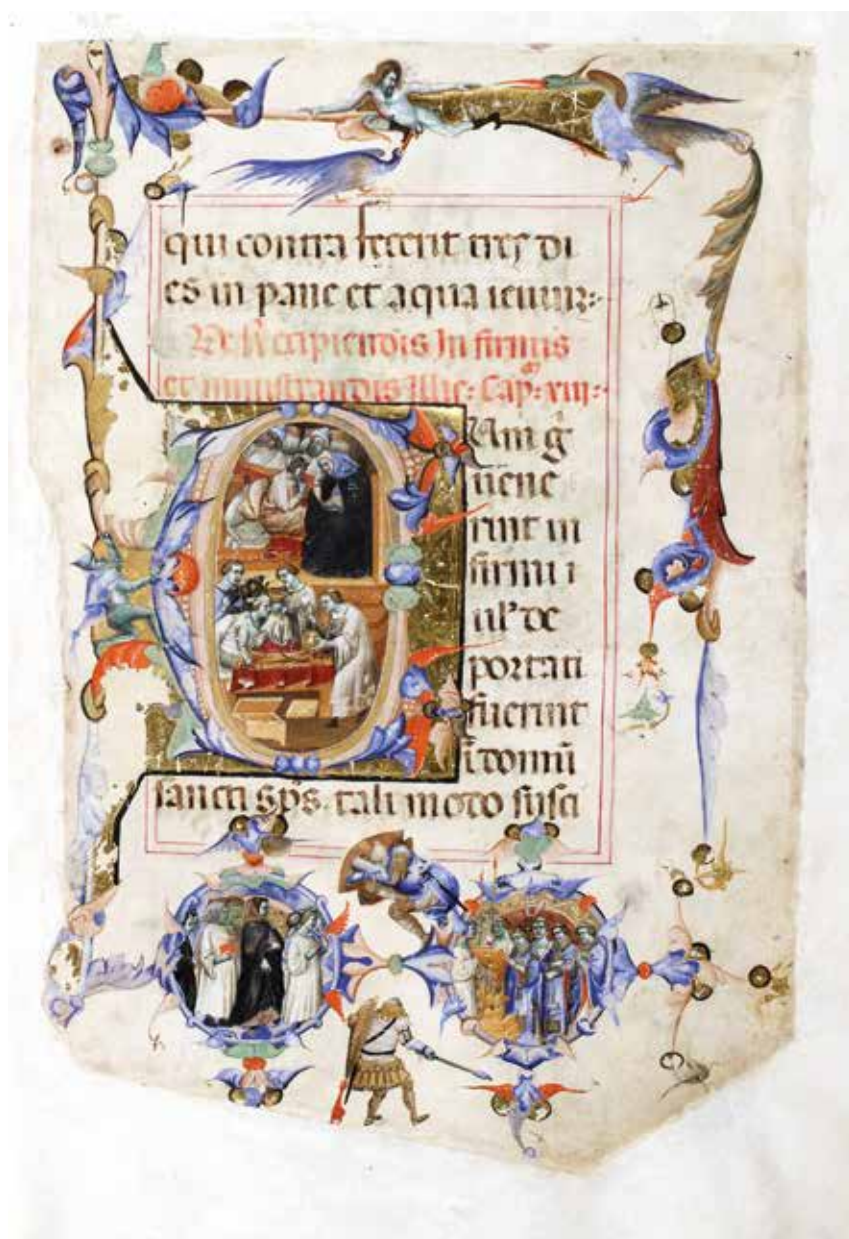 qui contra fecerit tres di
es in pane et aqua ieiun̄:
De Recipiendis Infirmis
et ministrandis Illic: Cap̄: xiii:
Um ḡ
uene
rint in
firmi i
ul' de
portati
fuerint
ī domū
sancti Sp̄s. tali modo susci